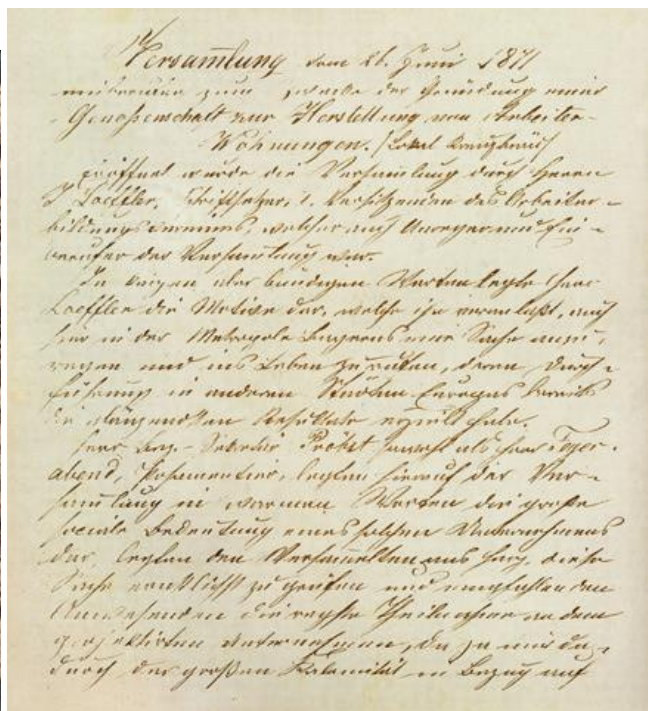 Versamlung vom 26. Juni 1871
anberaumt zum Zwecke der Gründung einer
Genoßenschaft zur Herstellung von Arbeiter-
Wohnungen. (Lokal Kreuzbräu)
Eröffnet wurde die Versamlung durch Herrn
J. Loeffler, Schriftsetzer, 1. Vorsitzenden des Arbeiter-
bildungsvereines, welcher auch Anreger und Ein-
berufer der Versamlung war.
In kurzen aber bündigen Worten legte Herr
Loeffler die Motive dar, welche ihn veranlaßt, auch
hier in der Metropole Bayerns eine Sache anzu-
regen und ins Leben zu rufen, deren Durch-
führung in anderen Städten Europas bereits
die glänzendsten Resultate erzielt habe.
Herr - Sekretär Probst sowohl als Herr Feyer-
abend, Posamentier, legten hierauf der Ver-
samlung in warmen Worten die große
sociale Bedeutung eines solchen Unternehmens
dar, legten den Versamelten ans Herz, diese
Sache zu prüfen und empfahlen den
Anwesenden die regste Theilnahme an dem
projektirten Unternehmen, da ja nur da-
durch der großen Kalamität in Bezug auf